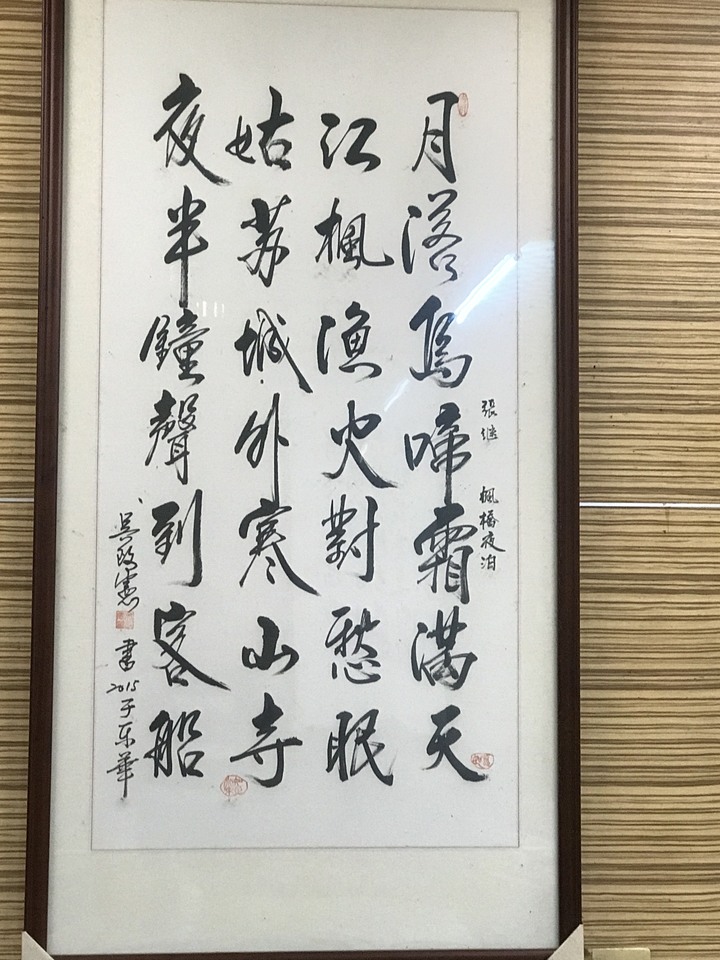 月落烏啼霜滿天
江楓漁火對愁眠
姑苏城外寒山寺
夜半鐘聲到客船
張继 楓橋夜泊
書2015于东華